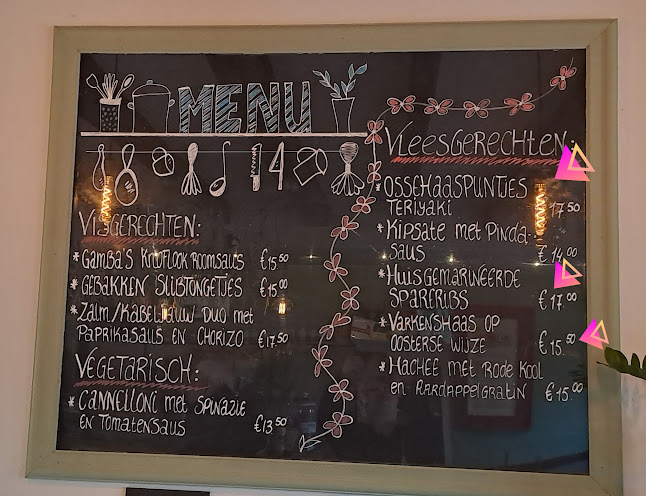 MENU
VISGERECHTEN:
* GAMBA'S KNOFLOOK ROOMSAUS €15.50
* GEBAKKEN SLIBTONGETJES €15.00
* ZALM/KABELJAUW DUO MET
PAPRIKASAUS EN CHORIZO €17.50
VEGETARISCH:
* CANNELLONI MET SPINAZIE
EN TOMATENSAUS €13.50
VLEESGERECHTEN:
* OSSEHAASPUNTJES
TERIYAKI 17.50
* KIPSATE MET PINDA-
SAUS €14.00
* HUISGEMARINEERDE
SPARERIBS €17.00
* VARKENSHAAS OP
OOSTERSE WIJZE €15.50
* HACHEE MET RODE KOOL
EN AARDAPPELGRATIN €15.00